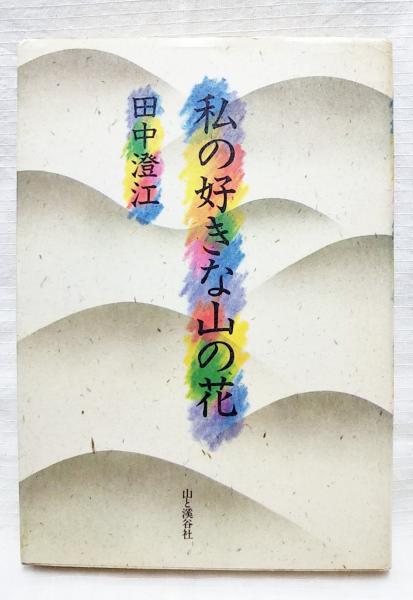 私の好きな山の花
田中澄江
山と溪谷社